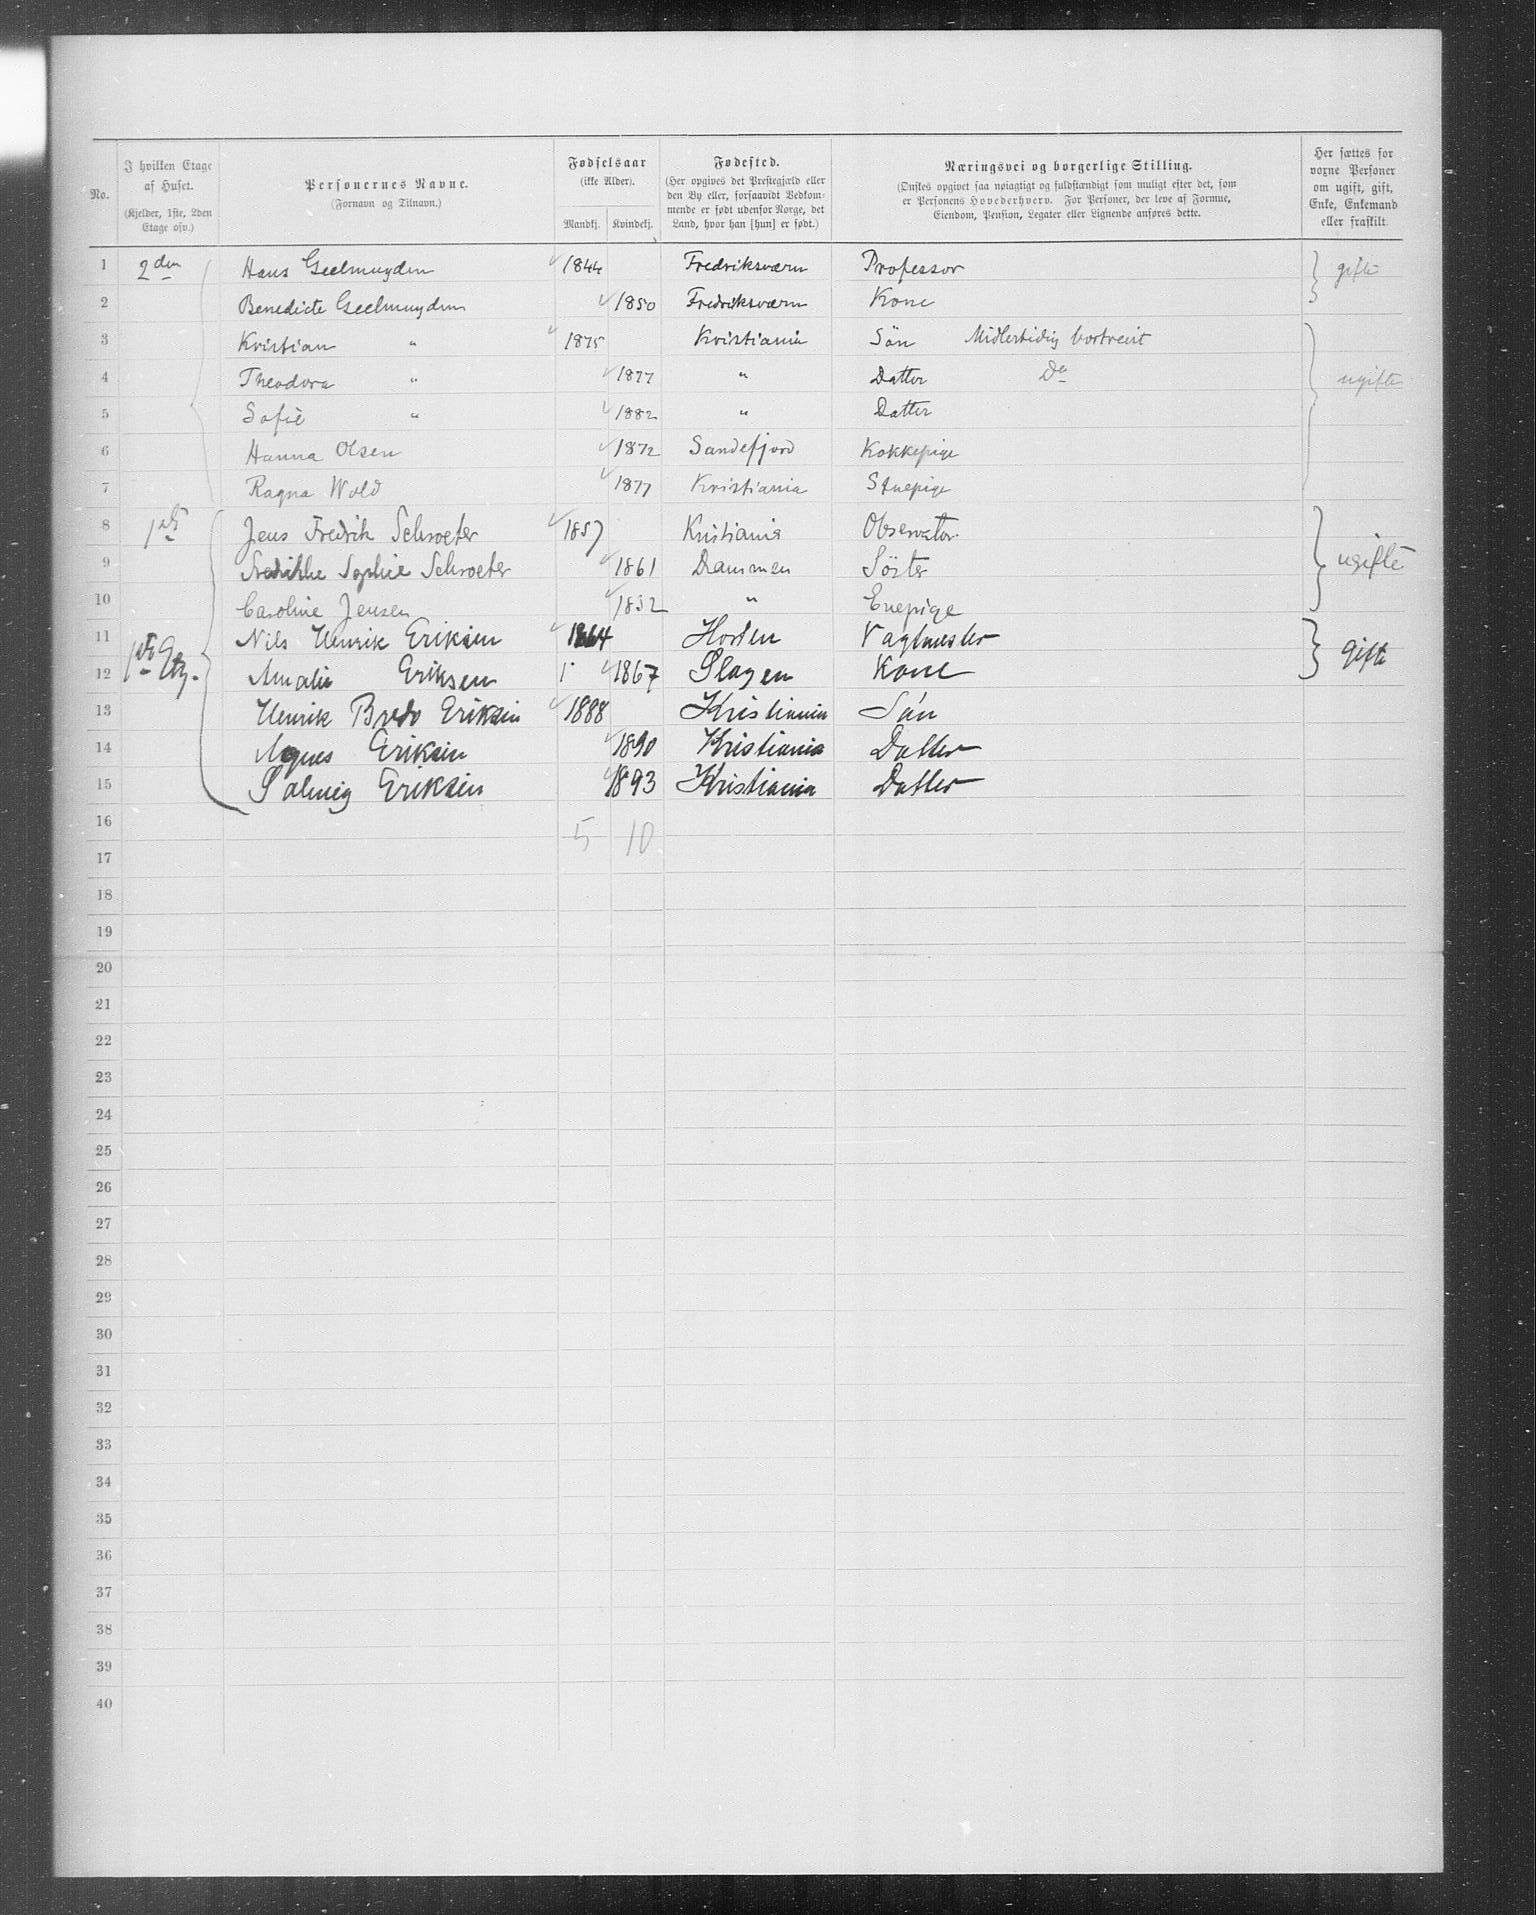 No.
I hvilken Etage af Huset.
(Kjelder, 1ste, 2den Etage osv.)
Personernes Navne.
(Fornavn og Tilnavn.)
Fødselsaar
(ikke Alder).
Mandkj. Kvindekj.
Fødested.
(Her opgives det Prestegjæld eller
den By eller, forsaavidt Vedkom-
mende er født udenfor Norge, det
Land, hvor han [hun] er født.)
Næringsvei og borgerlige Stilling.
(Ønskes opgivet saa nøiagtigt og fuldstændigt som muligt efter det, som
er Personens Hovederhverv. For Personer, der leve af Formue,
Eiendom, Pension, Legater eller Lignende anføres dette.
Her sættes for
voxne Personer
om ugift, gift,
Enke, Enkemand
eller fraskilt.
1 2den Hans Geelmuyden 1844 Fredriksværn Professor gifte
2 Benedicte Geelmuyden 1850 Fredriksværn Kone
3 Kristian " 1875 Kristiania Sön Midlertidig bortreist
4 Theodora " 1877 " Datter Do ugifte
5 Sofie " 1882 " Datter
6 Hanna Olsen 1872 Sandefjord Kokkepige
7 Ragna Wold 1877 Kristiania Stuepige
8 1ste Jens Fredrik Schroeter 1857 Kristiania Observator
9 Fredrikke Sophie Schroeter 1861 Drammen Söster ugifte
10 Caroline Jensen 1832 " Enepige
11 1ste Etg. Nils Henrik Eriksen 1864 Horten Vagtmester gifte
12 Amalie Eriksen 1867 Slagen Kone
13 Henrik Bredo Eriksen 1888 Kristiania Sön
14 Agnes Eriksen 1890 Kristiania Datter
15 Solveig Eriksen 1893 Kristiania Datter
16 5 10
17
18
19
20
21
22
23
24
25
26
27
28
29
30
31
32
33
34
35
36
37
38
39
40